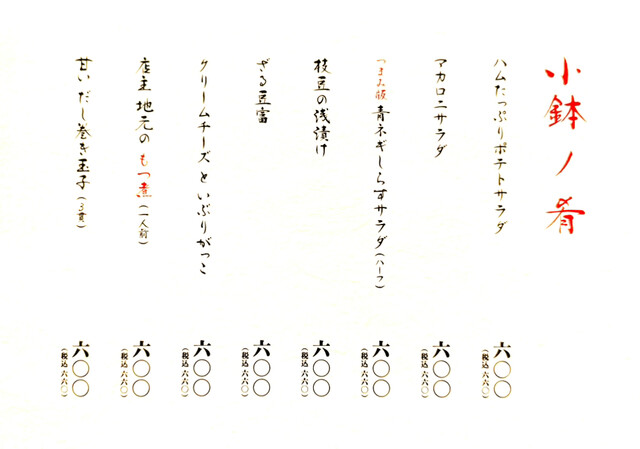 小鉢ノ肴
ハムたっぷりポテトサラダ
六〇〇
(税込 六六〇)
マカロニサラダ
六〇〇
(税込 六六〇)
つまみ版 青ネギしらすサラダ(ハーフ)
六〇〇
(税込 六六〇)
枝豆の浅漬け
六〇〇
(税込 六六〇)
ざる豆富
六〇〇
(税込 六六〇)
クリームチーズといぶりがっこ
六〇〇
(税込 六六〇)
店主 地元の もつ煮(一人前)
六〇〇
(税込 六六〇)
甘いだし巻き玉子(3貫)
六〇〇
(税込 六六〇)